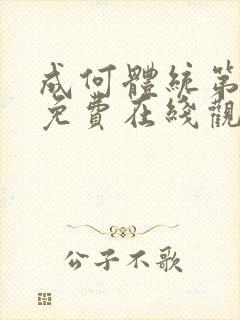 成何體統第
免費在綫觀
公子不歌